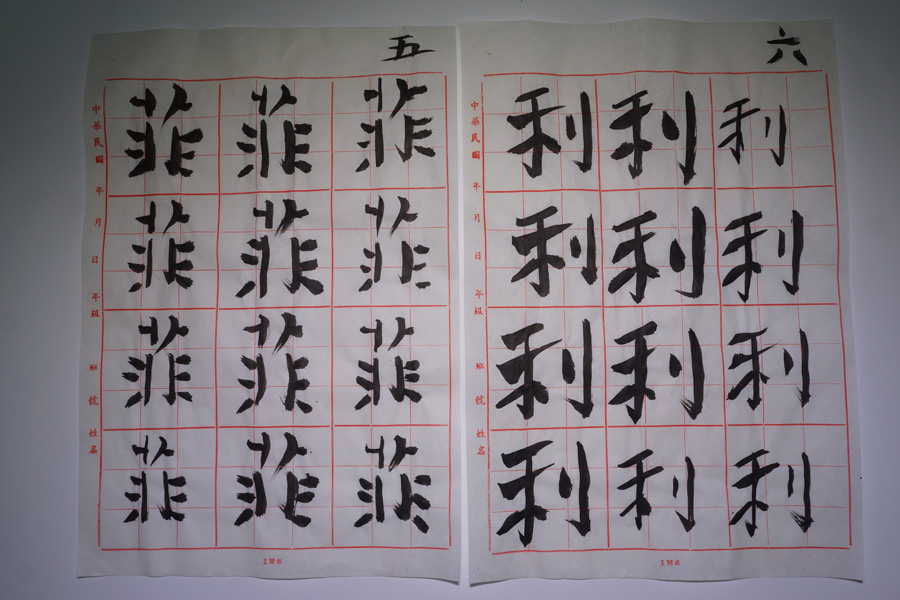 五
菲菲菲
菲菲菲
菲菲菲
菲菲菲
中華民國 年 月 日 年級 班 號 姓名
六
利利利
利利利
利利利
利利利
中華民國 年 月 日 年級 班 號 姓名